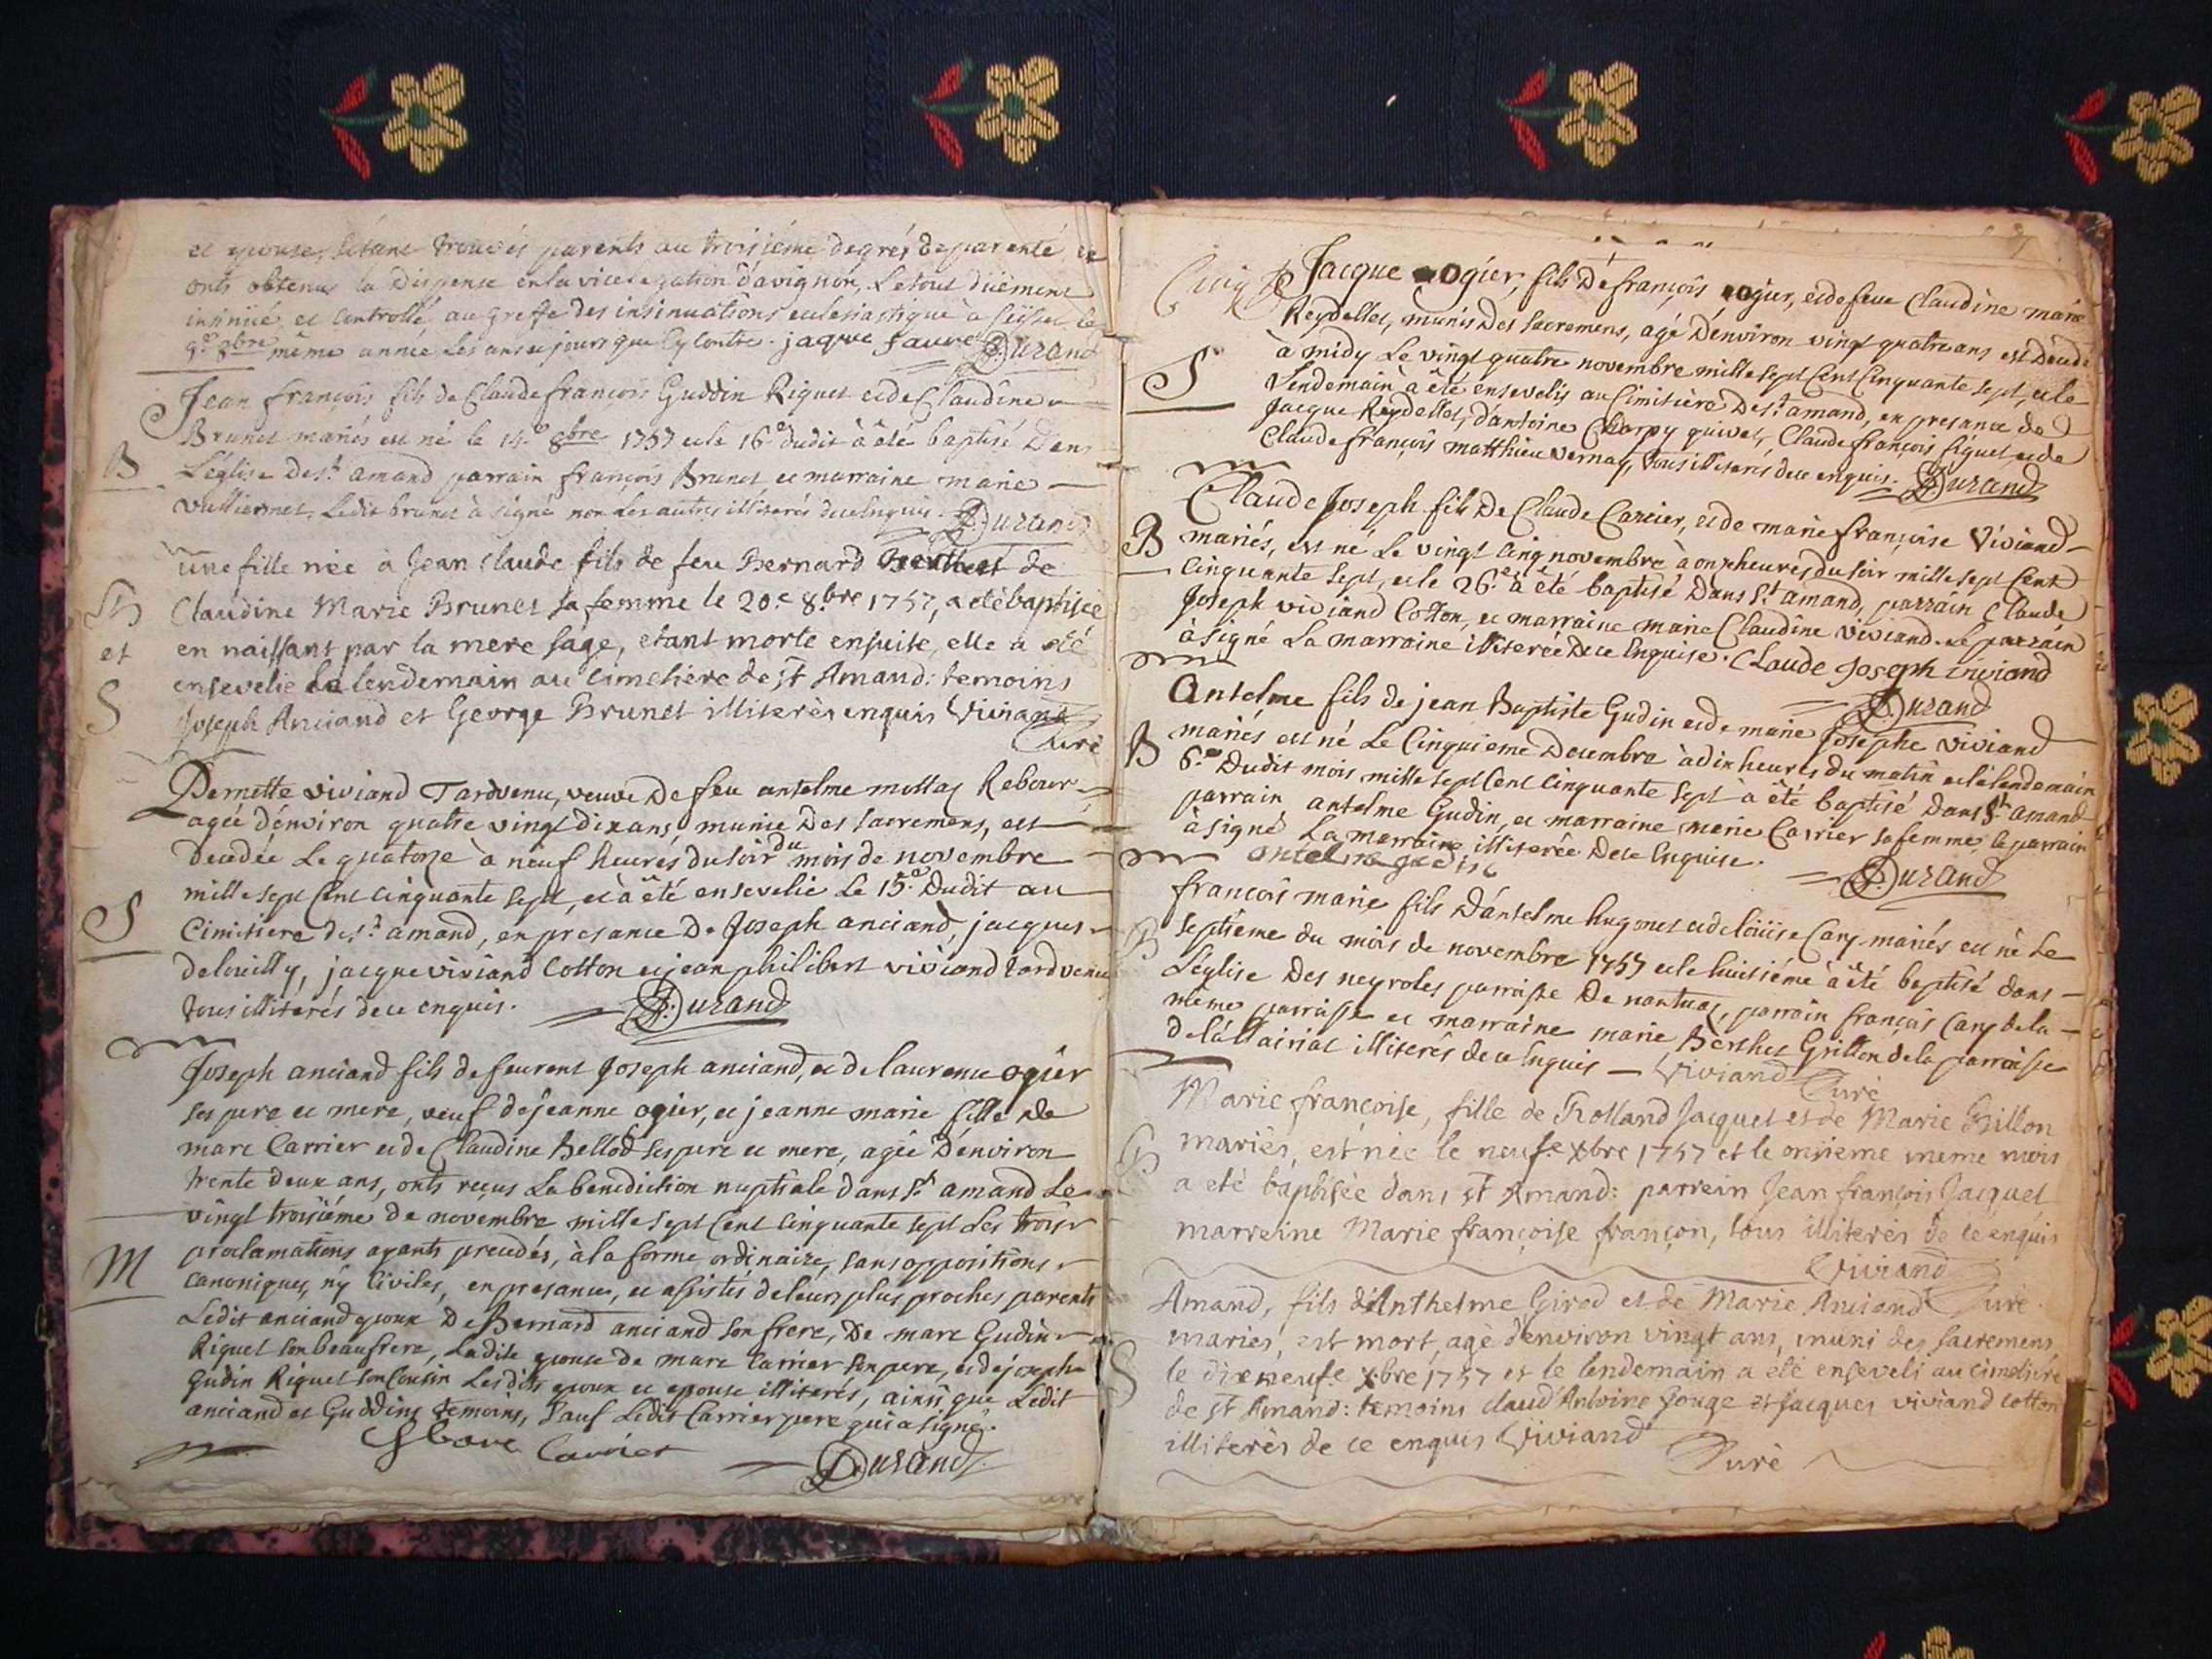 et epouse, s'étant trouvés parents au troisiéme degrés de parenté, et
onts obtenus la dispense en la vicelegation d'avignon, Le tout düement
insinüé et controllé au greffe des insinuations eclesiastique à seissel le
9.e 8bre même année, les ans et jours que cy contre. jaque faure Durand
Jean françois fils de Claude françois Guddin Riquet et de Claudine
Brunet mariés est né le 14.e 8bre 1757 et le 16.e dudit à êté baptisé dans
B
L'église de s.t amand parrain françois Brunet et marraine marie
vulliermet, Ledit brunet à signé non les autres illiterés de ce enquis. Durand
une fille née à Jean Claude fils de feu Bernard Berthet de
Claudine Marie Brunet sa femme le 20.e 8.bre 1757, a eté baptisée
et
en naissant par la mere sage, etant morte ensuite, elle a eté
ensevelie le lendemain au cimetiere de st Amand: temoins
S
Joseph Anciand et George Brunet illiterès enquis Viviand
Curè
Pernette viviand Tardvenu, veuve de feu antelme mottaz Rebour
agée d'énviron quatre vingt dix ans, munie des sacremens, est
decedée Le quatorze à neuf heures du soir du mois de novembre
mille sept cent cinquante sept, et à êté ensevelie Le 15.e dudit au
S
Cimitiere de s.t amand, en presance de Joseph anciand, jacques
delouilly, jacque viviand Cotton et jean philibert viviand tardvenu
tous illiterés de ce enquis. Durand
Joseph anciand fils de feu rent Joseph anciand, et de laurence ogier
ses pere et mere, veuf de jeanne ogier, et jeanne marie fille de
marc Carrier et de Claudine Bellod ses pere et mere, agée d'énviron
trente deux ans, onts reçus La benediction nuptiale dans s.t amand Le
vingt troisiéme de novembre mille sept cent cinquante sept Les trois
M
proclamations ayants precedés, à la forme ordinaire, sans oppositions
canoniques, ny Civiles, en presance, et assistés de leurs plus proches parents
Ledit anciand epoux de Bernard anciand son frere, de marc Gudin
Riquet son beaufrere, Ladite epouse de marc Carrier son pere, et de joseph
gudin Riquet son Cousin Lesdits epoux et epouse illiterés, ainsi que Ledit
anciand et Guddins temoins, sauf Ledit Carrier pere qui a signé.
Carrier
Durand
Jacque ogier, fils de françois ogier, et de feue Claudine marie
Reydellet, munis des sacremens, agé d'énviron vingt quatre ans est decedé
à midy Le vingt quatre novembre mille sept Cent Cinquante sept, et le
S
Lendemain à êté ensevelis au Cimitiére de s.t amand, en presance de
Jacque Reydellet, d'antoine Charpy quivet, Claude françois siguet et de
Claude françois matthieu vernay, tous illiterés de ce enquis. Durand
Claude Joseph fils de Claude Carrier, et de marie françoise Viviand
B
mariés, est né Le vingt cinq novembre à onze heures du soir mille sept Cent
Cinquante sept, et le 26.e à êté baptisé dans s.t amand, parrain Claude
Joseph viviand Cotton, et marraine marie Claudine viviand. Le parrain
à signé La marraine illiterée de ce enquise. Claude Joseph viviand
Durand
antelme fils de jean Baptiste Gudin et de marie Josephe viviand
B
mariés est né Le Cinquieme decembre à dix heures du matin et le lendemain
6.e dudit mois mille sept cent cinquante sept à êté baptisé dans s.t amand
parrain antelme Gudin, et marraine marie Carrier sa femme, le parrain
à signé La marraine illiterée de ce enquise.
antelme gudin
Durand
francois marie fils d'antelme hugonet et de loüise Cary mariés est né Le
B
septieme du mois de novembre 1757 et le huitiéme à êté baptisé dans
L'église des neyroles parroisse de nantuaz, parrain françois Cary de la
même parroisse et marraine marie Berthet Grillon de la parroisse
illiterés de ce enquis Viviand
Curè
Marie françoise, fille de Rolland Jacquet et de Marie Grillon
mariès, est née le neuf.e Xbre 1757 et le onsieme meme mois
a eté baptisée dans st Amand: parrein Jean françois Jacquet
marreine Marie françoise françon, tous illiterès de ce enquis
Viviand
Amand, fils d'Anthelme Girod et de Marie Anciand Curè.
mariès, est mort, agé d'environ vingt ans, muni des sacremens,
S
le dixneuf.e Xbre 1757 et le lendemain a eté enseveli au cimetière
de st Amand: temoins claud'Antoine Gouge et Jacques viviand cotton
illiterès de ce enquis Viviand
Curè